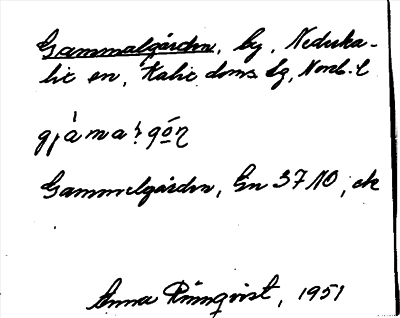 Gammalgården, by, Nederka-
lix en, Kalix doms. lg, Norrb. l
gjámaʔgọ́n
Gammelgården, En 37 NO, ek
Anna Rönnqvist, 1951